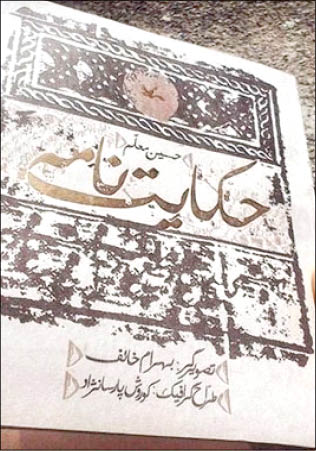 حسین معلم
حکایت نامه
تصویرگر: بهرام خائف
طراح گرافیک: کوروش پارسانژاد